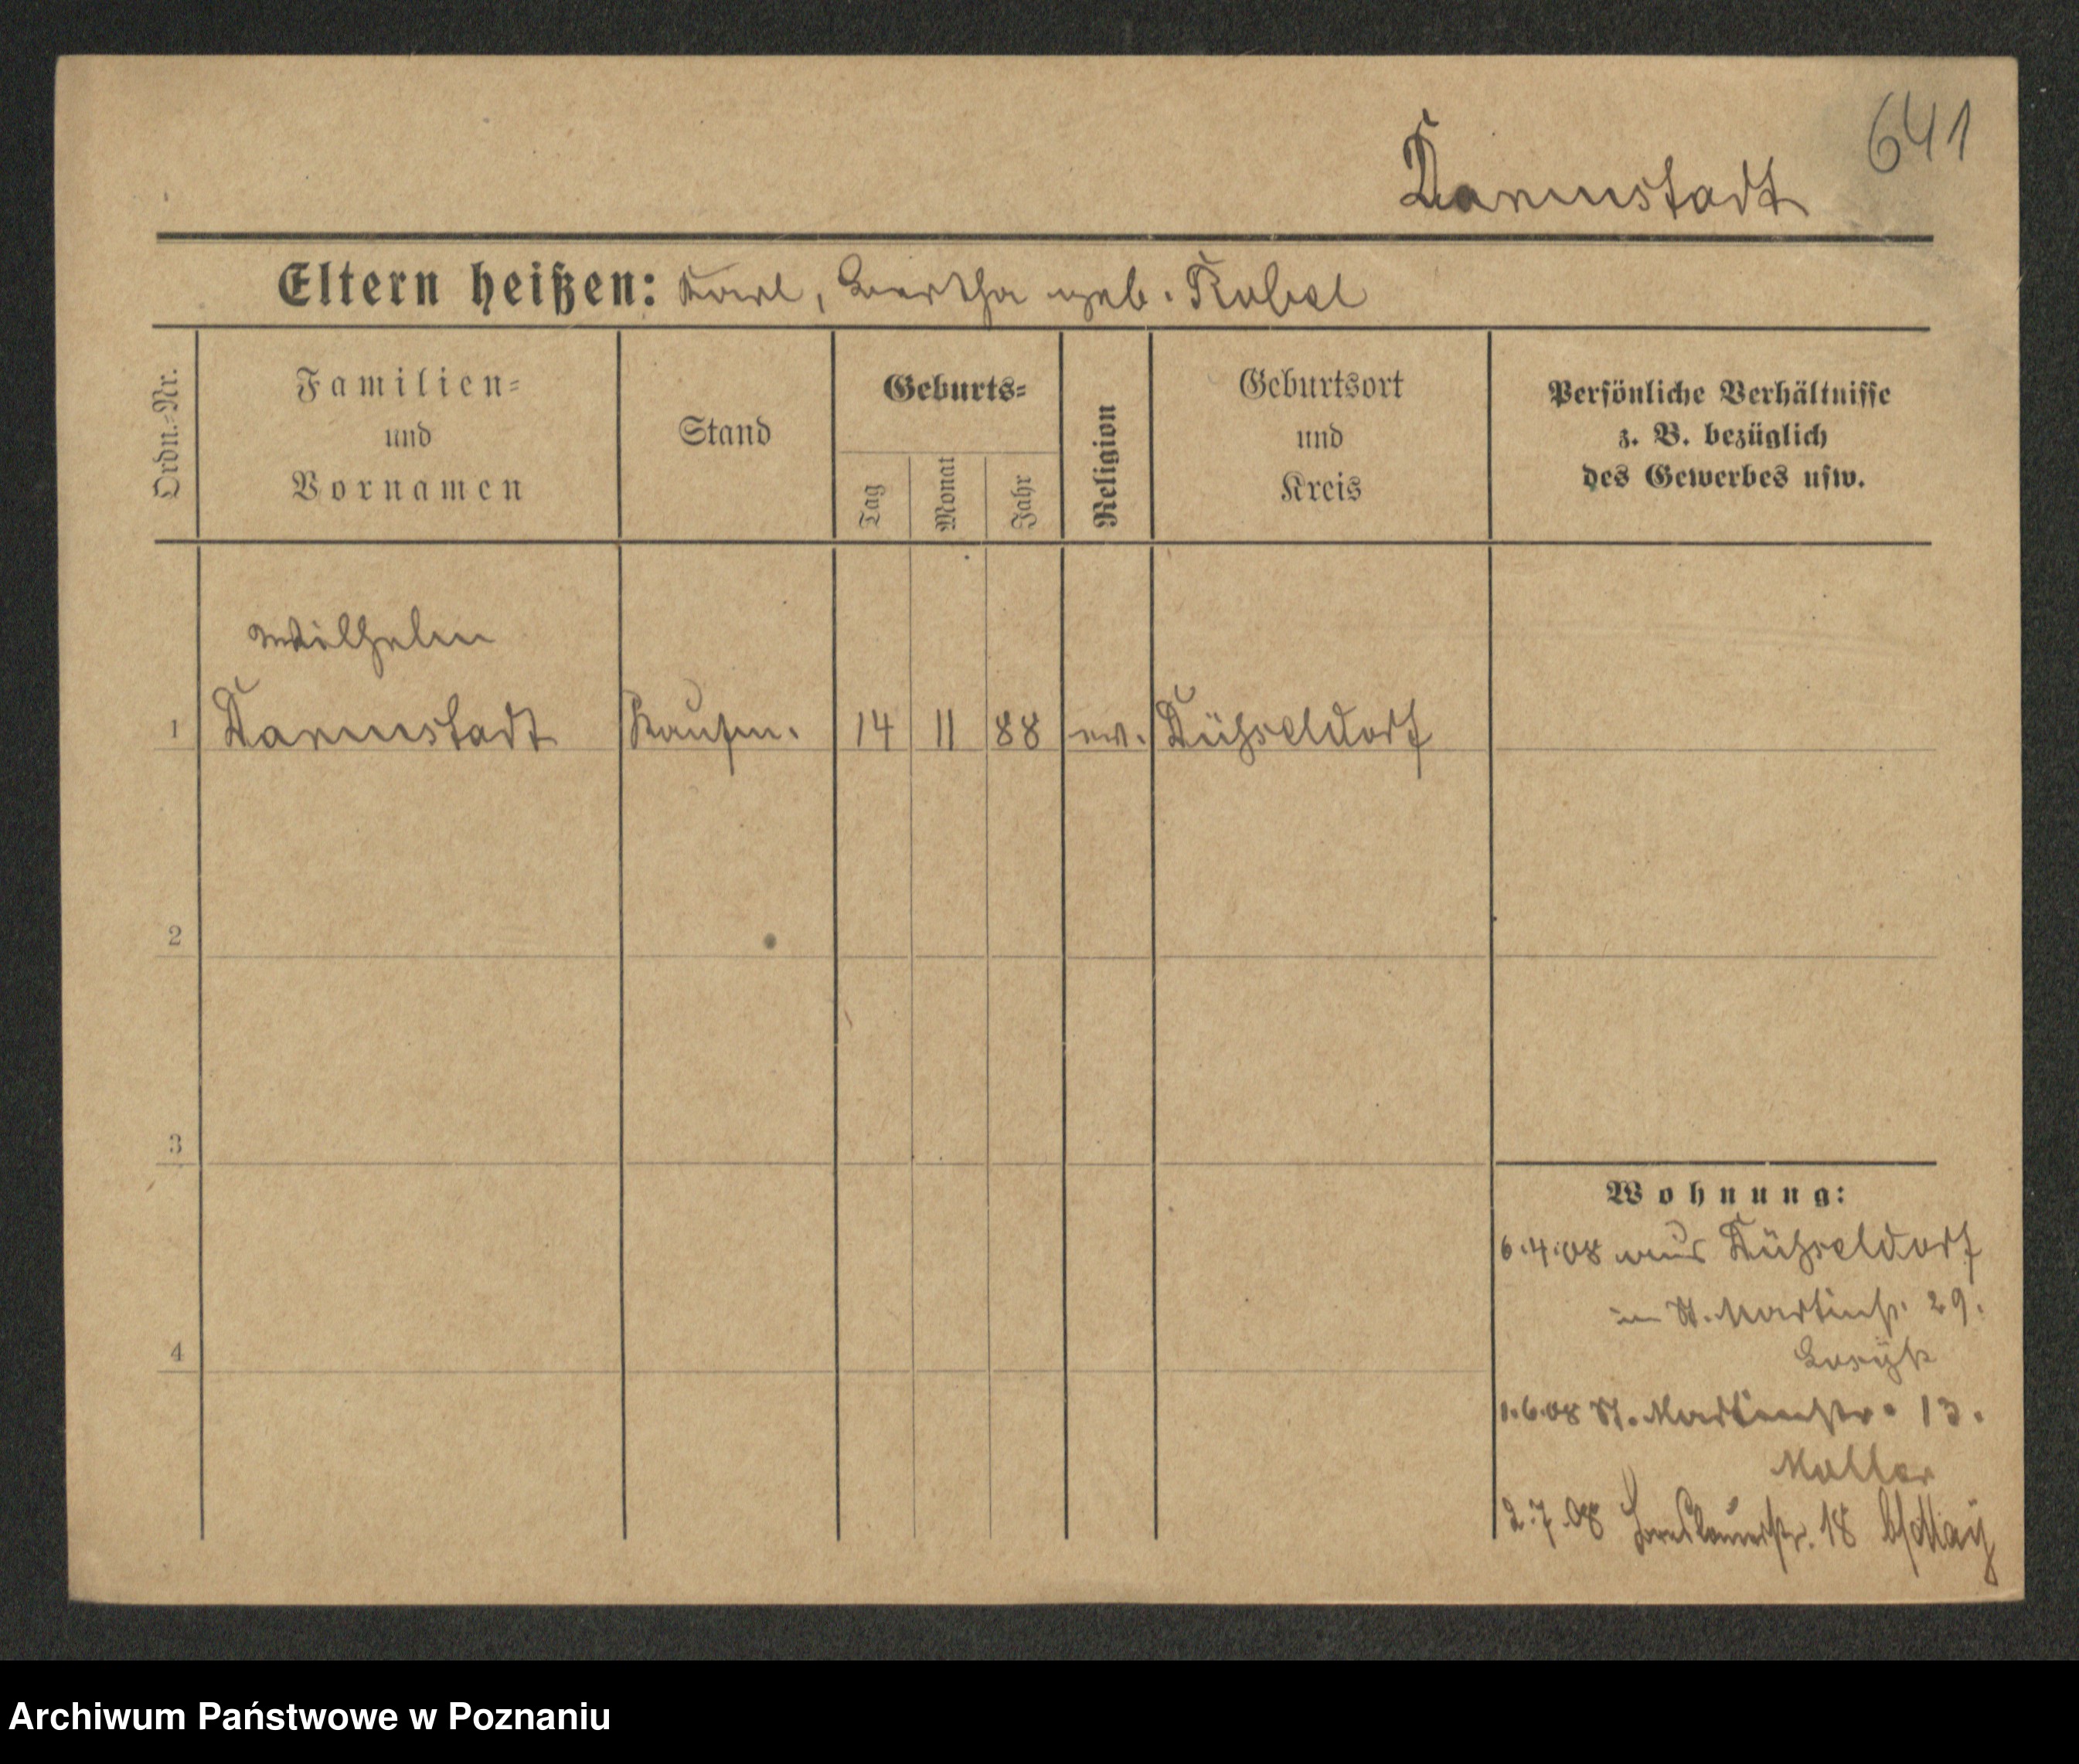 641
Darmstadt
Eltern heißen: Karl, Bertha geb. Kobel
Ordn.=Nr.
Familien=
und
Vornamen
Stand
Geburts=
Tag
Monat
Jahr
Religion
Geburtsort
und
Kreis
Persönliche Verhältnisse
z. B. bezüglich
des Gewerbes usw.
Wilhelm
1 Darmstadt Kaufm. 14 11 88 ev. Düsseldorf
2
3
4
Wohnung:
6.4.08 aus Düsseldorf
in St. Martinstr. 29.
1.6.08 St. Martinstr. 13.
Moller
2.7.08 Breslauerstr. 18 b/
Archiwum Państwowe w Poznaniu